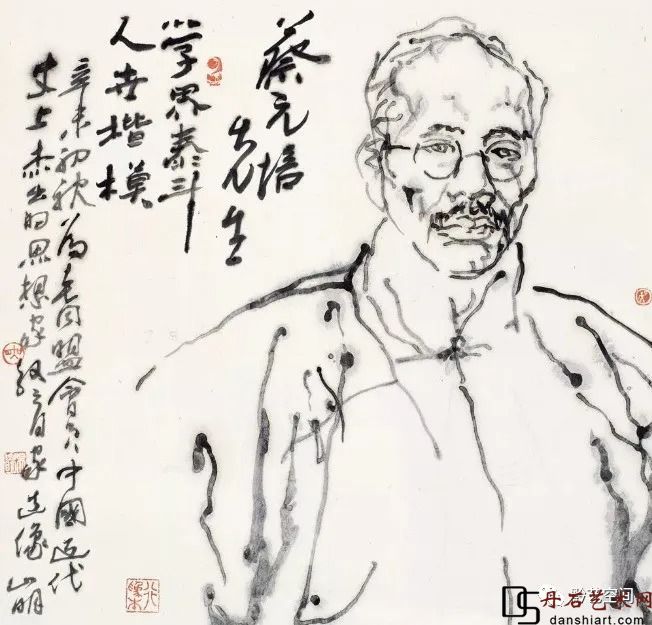 蔡元培
先生
学界泰斗
人世楷模
辛未初秋为老同盟会员中國近代
史上杰出的思想家教育家造像山明
空间
DS
丹石艺术网
danshiart.com